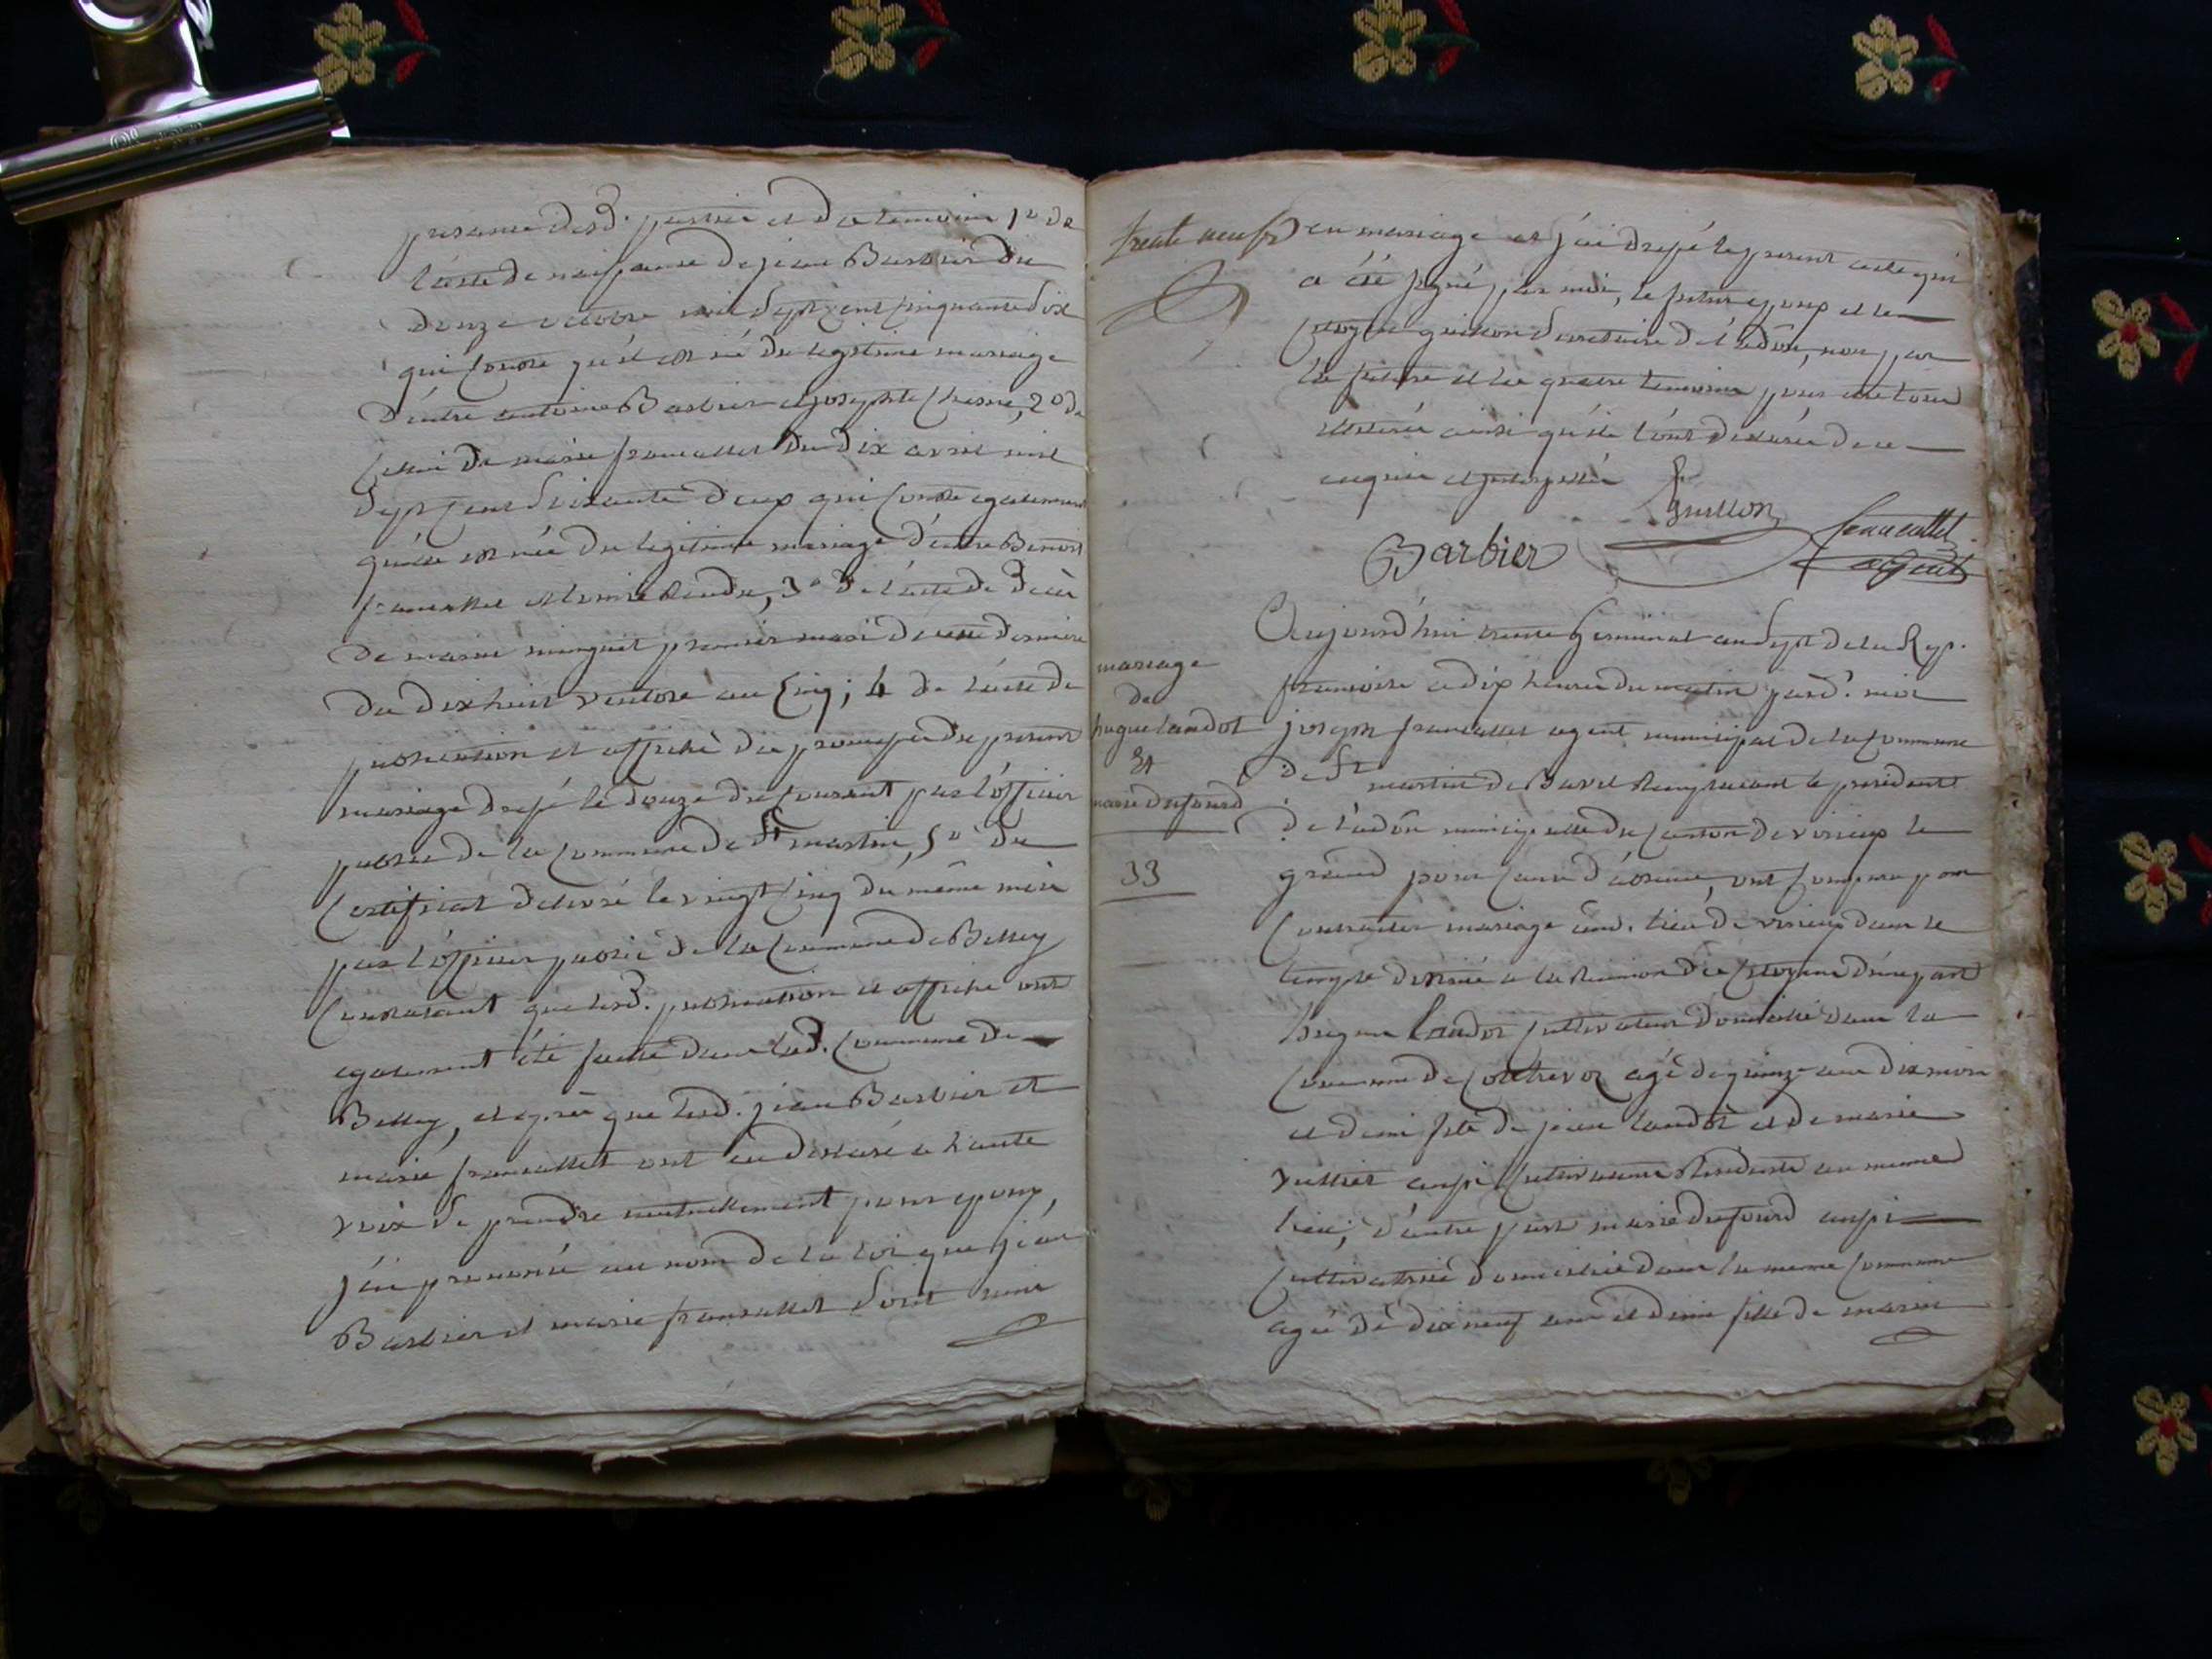 presence desd. parties et des temoins 1º de
l'acte de naissance de jean Barbier du
douze octobre mil sept cent cinquante six
qui conste qu'il est né du legitime mariage
d'entre antoine Barbier et josephte 2º de
celui de marie francallet du dix avril mil
sept cent soixante deux qui conste egalement
qu'elle est née du legitime mariage d'entre Benoit
francallet et 3º de l'acte de décès
de marin minguet premier mari de cette derniere
du dix huit ventose an cinq; 4 de l'acte de
publication et affiche des promesses du present
mariage dressé le douze du courant par l'officier
public de la commune de St martin, 5º du
certificat delivré le vingt cinq du même mois
par l'officier public de la commune de Belley
constatant que lesd. publication et affiche ont
egalement été faites dans lad. commune de
Belley, et après que lesd. jean Barbier et
marie francallet ont eu déclaré a haute
voix se prendre mutuellement pour epoux,
j'ai prononcé au nom de la loi que jean
Barbier et marie francallet sont unis
trente neuf
en mariage et j'ai dressé le present acte qui
a été signé par moi, le futur epoux et le
citoyen guillon secretaire de l'adon, non par
la future et les quatre temoins pour etre tous
illiterés ainsi qu'ils l'ont declaré de ce
enquis et interpellés
guillon
Barbier
francallet
agent
mariage
de
hugue landot
Et
marie dufourd
33
Aujourd'hui trente germinal an sept de la Rep.
francoise a dix heures du matin pard. moi
joseph francallet agent municipal de la commune
de St martin de Bavel Remplacant le president
de l'adon municipalle du canton de virieux le
grand pour cause d'absence, ont comparu pour
contracter mariage aud. lieu de virieux dans le
temple destiné a la Reunion des citoyens d'une part
hugue landot cultivateur domicilié dans la
commune de agé de quinze ans dix mois
et demi fils de jean landot et de marie
vuillet aussi cultivateurs Residents au meme
lieu; d'autre part marie dufourd aussi
cultivatrice domiciliée dans la meme commune
agée de dix neuf ans et demi fille de marin